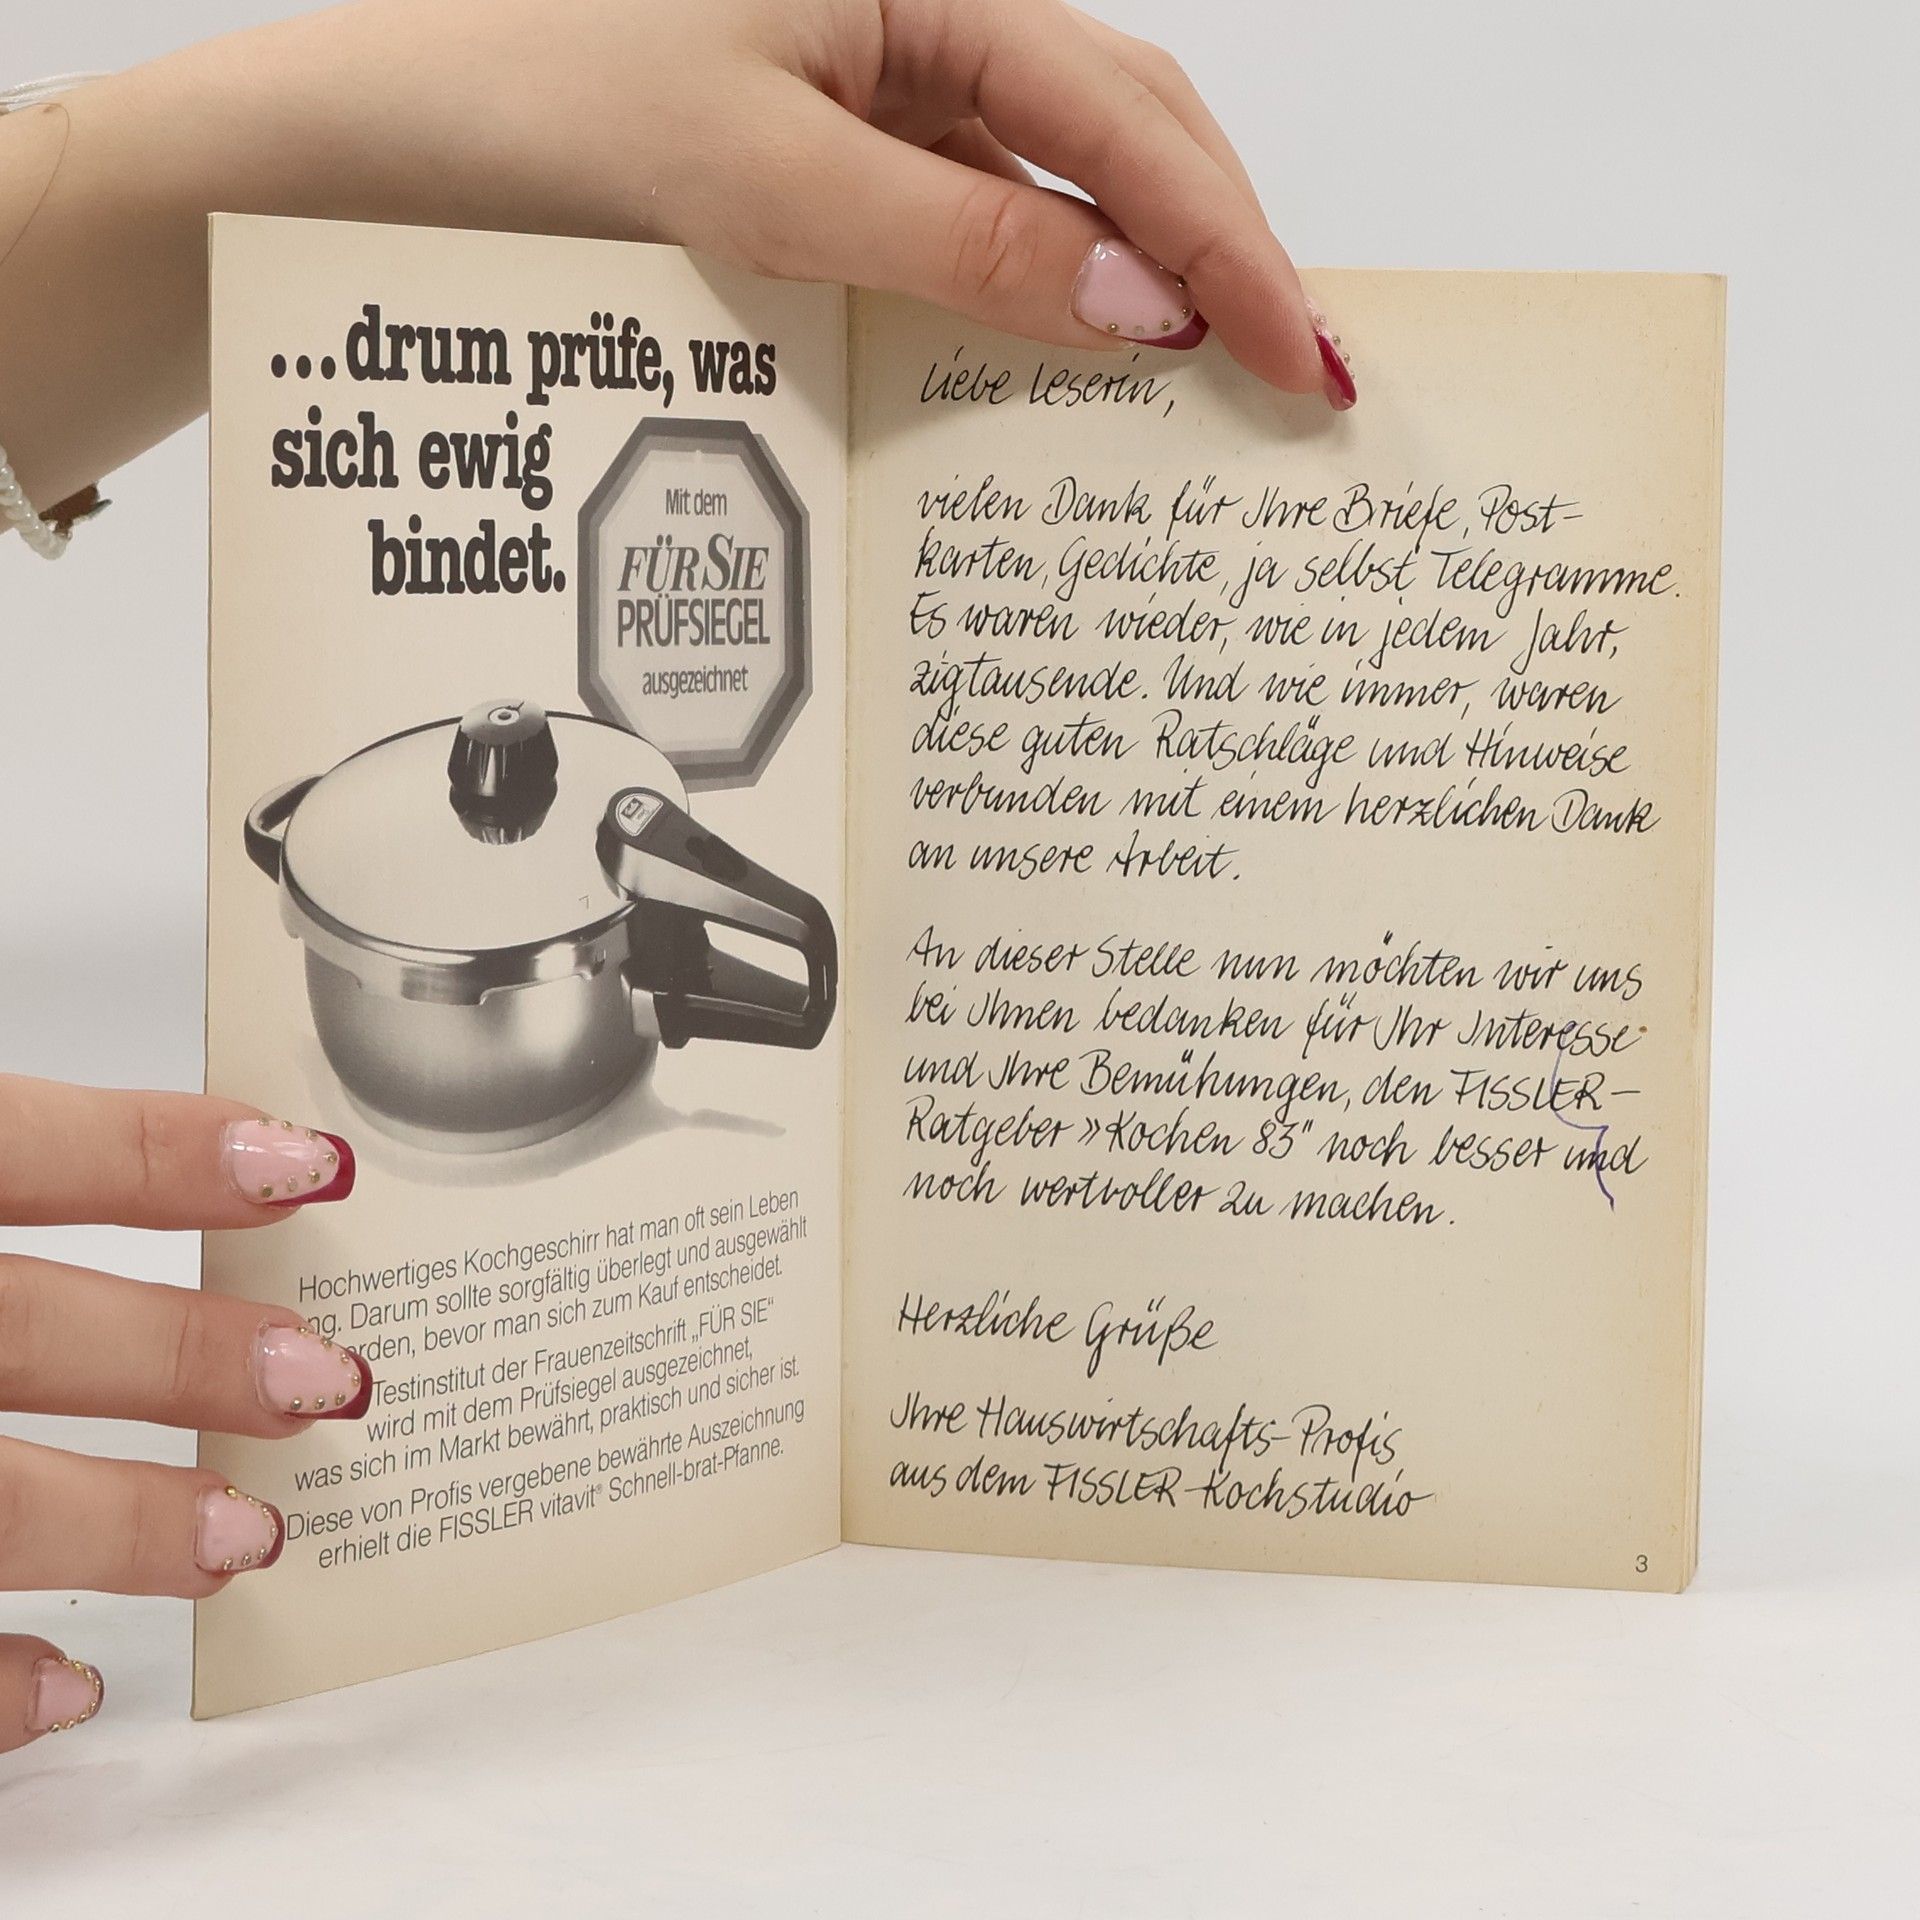 ...drum prüfe, was
sich ewig
bindet.
Mit dem
FÜR SIE
PRÜFSIEGEL
ausgezeichnet
Hochwertiges Kochgeschirr hat man oft sein Leben
ng. Darum sollte sorgfältig überlegt und ausgewählt
erden, bevor man sich zum Kauf entscheidet.
Testinstitut der Frauenzeitschrift „FÜR SIE"
wird mit dem Prüfsiegel ausgezeichnet,
was sich im Markt bewährt, praktisch und sicher ist.
Diese von Profis vergebene bewährte Auszeichnung
erhielt die FISSLER vitavit® Schnell-brat-Pfanne.
Liebe Leserin,
vielen Dank für Ihre Briefe, Post-
karten, Gedichte, ja selbst Telegramme.
Es waren wieder, wie in jedem Jahr,
zigtausende. Und wie immer, waren
diese guten Ratschläge und Hinweise
verbunden mit einem herzlichen Dank
an unsere Arbeit.
An dieser Stelle nun möchten wir uns
bei Ihnen bedanken für Ihr Interesse
und Ihre Bemühungen, den FISSLER-
Ratgeber »Kochen 83" noch besser und
noch wertvoller zu machen.
Herzliche Grüße
Ihre Hauswirtschafts-Profis
aus dem FISSLER-Kochstudio
3